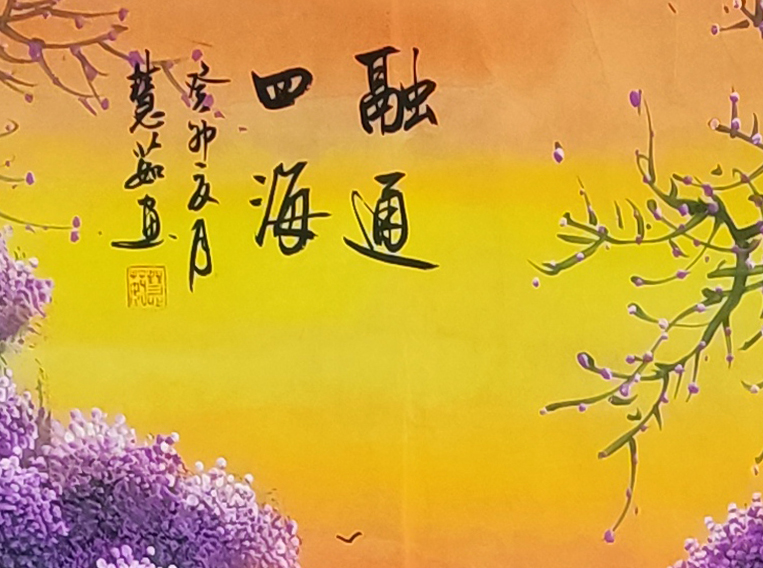 融通
四海
癸卯二女月
慧茹画